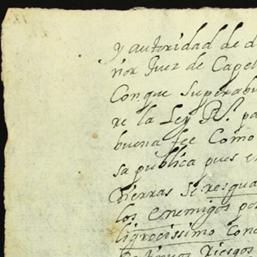 y autoridad de d
ñor Juez de Capel
Con que Superabu
re la Ley Rl. pa
buena fee Como
sa publica pues e
tierras Se resgua
los enemigos po
ligrocissimo Conc
Riesgos